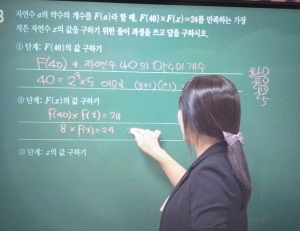 자연수 a의 약수의 개수를 F(a)라 할 때, F(40)×F(x)=24를 만족하는 가장
작은 자연수 x의 값을 구하기 위한 풀이 과정을 쓰고 답을 구하시오.
① 단계: F(40)의 값 구하기
F(40) → 자연수 40의 약수의 개수
40 = 2³×5 이므로 (3+1)(1+1)
② 단계: F(x)의 값 구하기
F(40)×F(x)=24
8×F(x)=24
③ 단계: x의 값 구하기